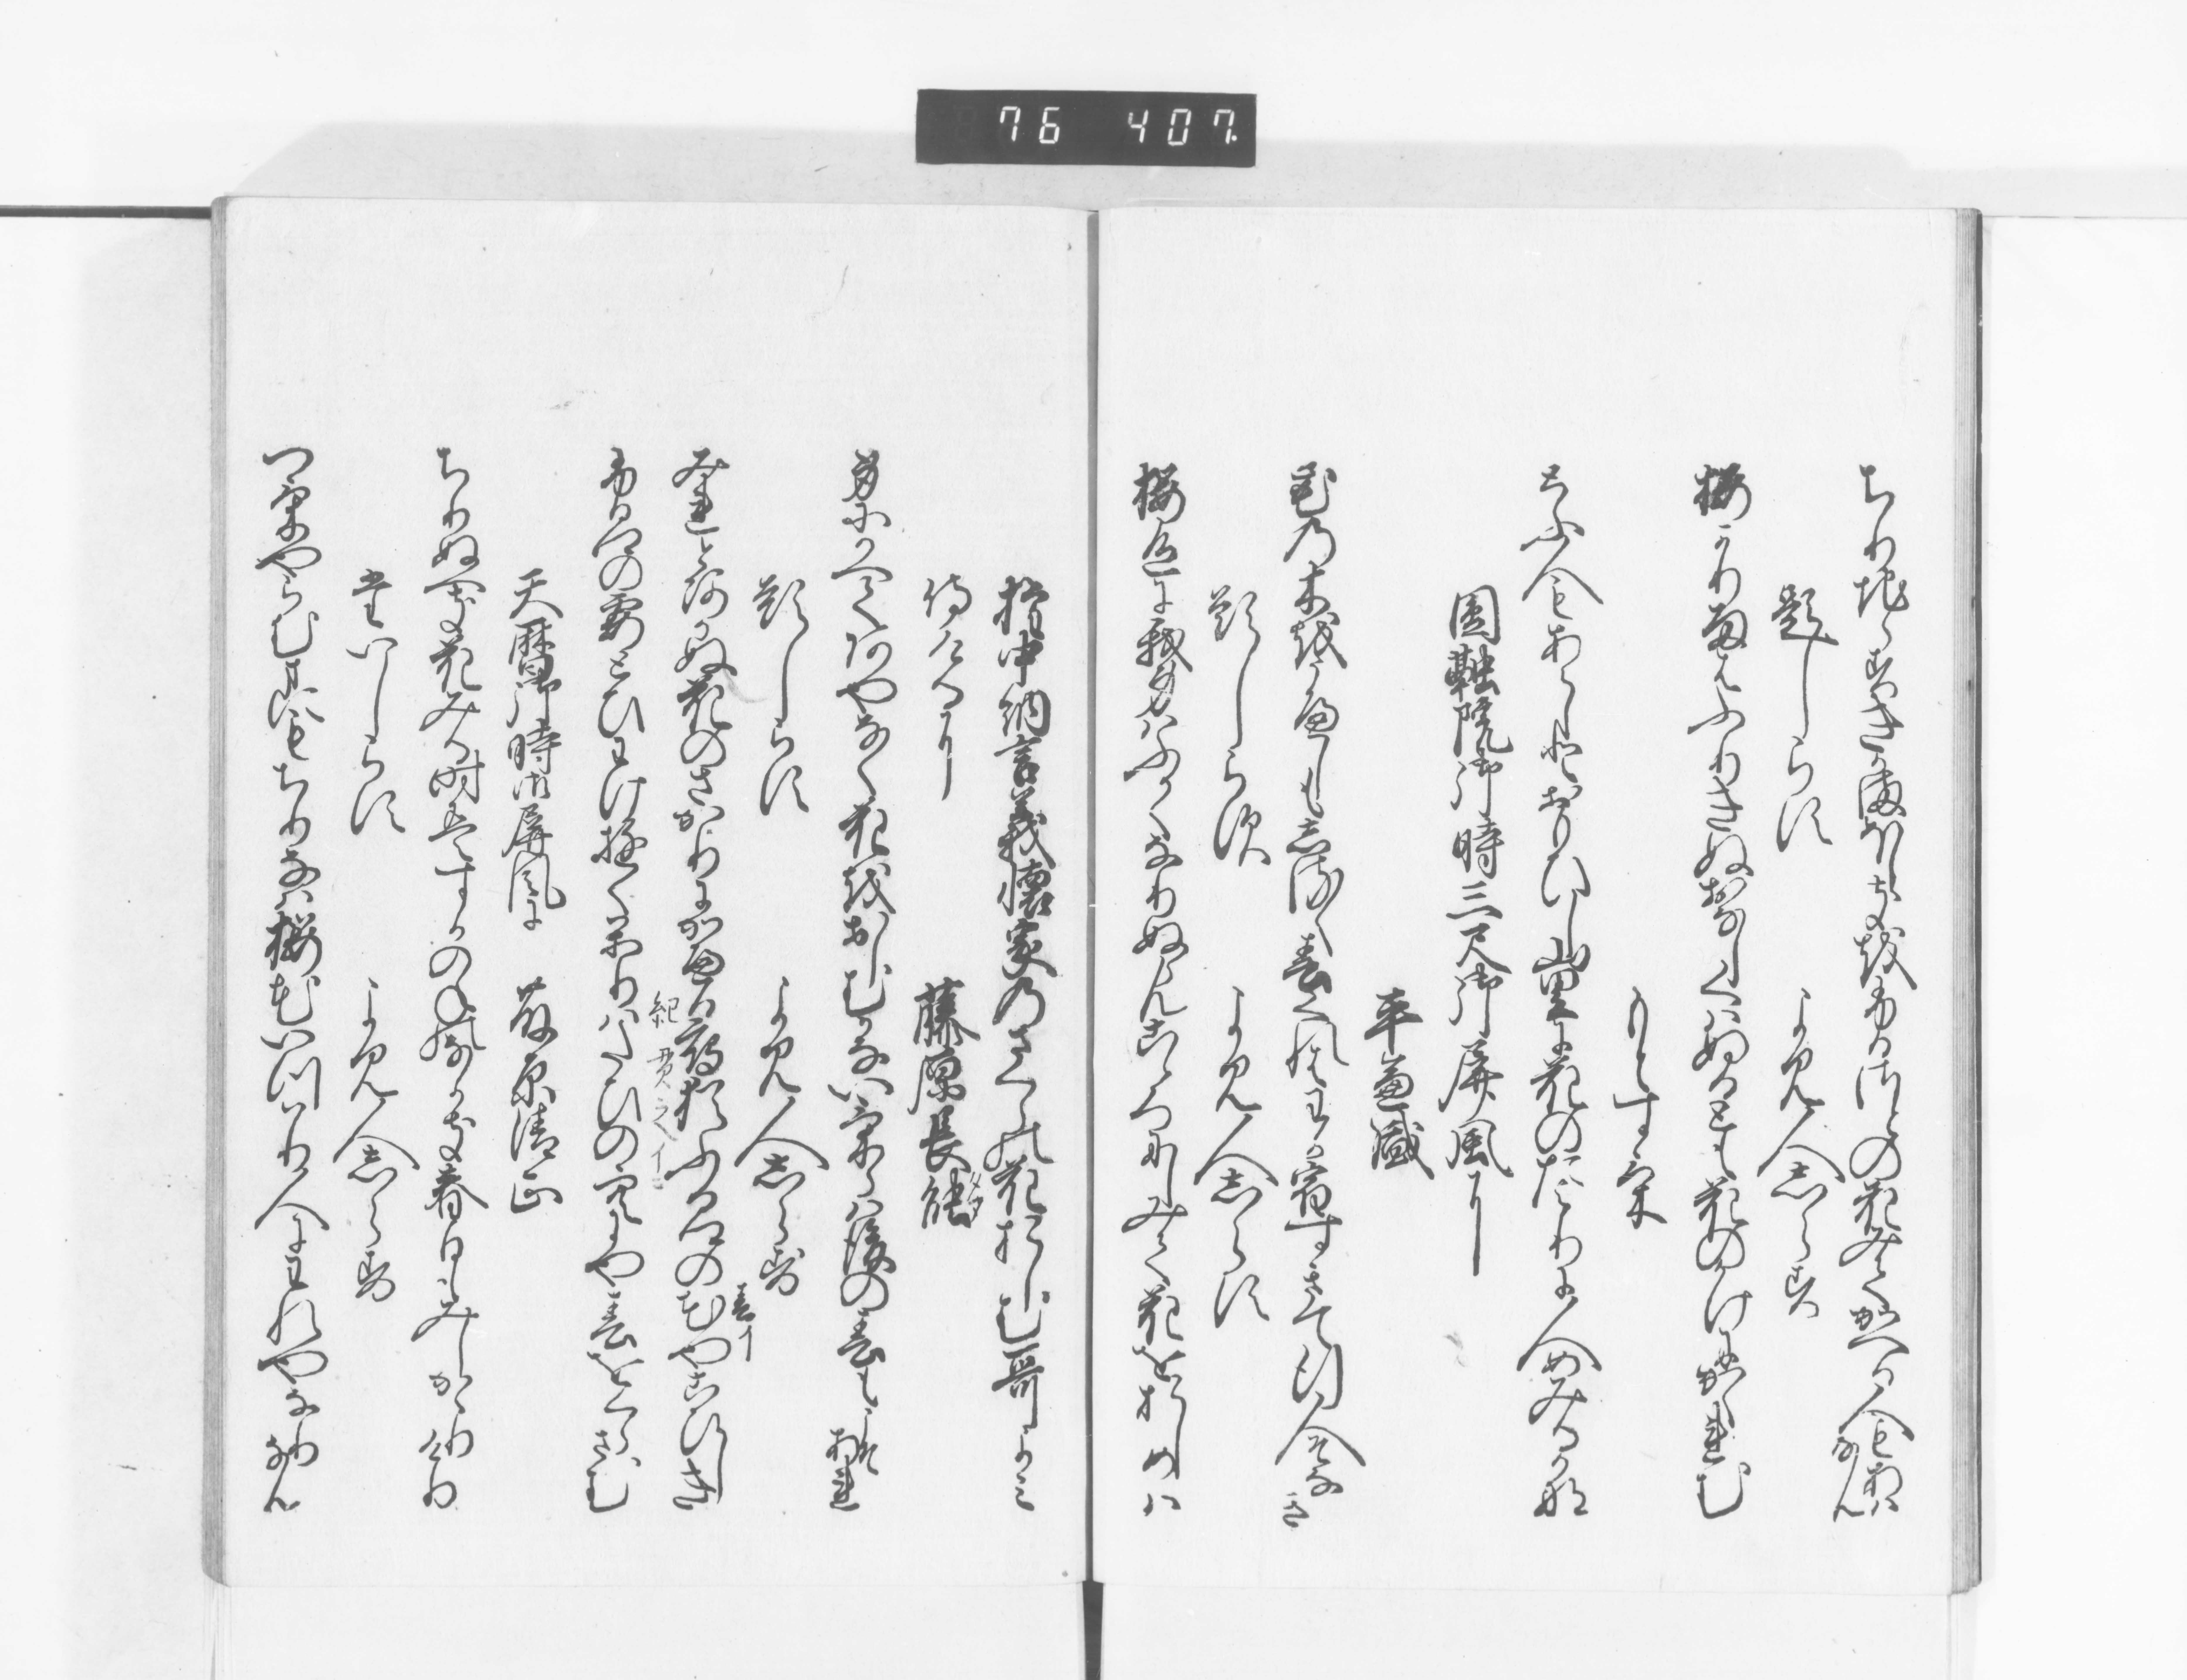 ちりちらすきかまほしきをふるさとの花みてかへる人もあはなん
題しらす　よみ人しらす
桜かり雨はふりきぬおなしくはぬるとも花のかけにかくれむ
もとすけ
とふ人もあらしとおもひし山里に花のたよりに人めみるかな
圓融院御時三尺御屏風に
平兼盛
花の木をうへしもしるく春くれはわか宿すきて行人そなき
題しらす　よみ人しらす
桜色に我身はふかくなりぬらんこゝろにしみて花をおしめは
権中納言義懐家のさくらの花おしむ哥よみ
侍けるに　藤原長能
身にかへてあやなく花をおしむかないけらは後の春もこそあれ
題しらす　よみ人しらす
みれとあかぬ花のさかりにかへる鴈猶ふるさとのはるやこひしき
紀貫之イ
春イ
ふるさとの霞とひわけ行鴈はたひの空にや春をくらさむ
天暦御時御屏風に　藤原清正
ちりぬへき花みる時はすかのねの永き春日もみしかかりけり
題しらす　よみ人しらす
つけやらむまにもちりなは桜花いつはり人にわれやなりなん
76 407